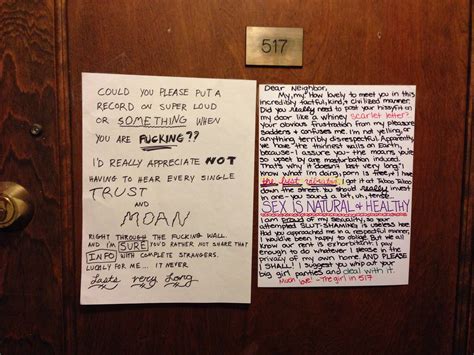 517
COULD YOU PLEASE PUT A
RECORD ON SUPER LOUD
OR SOMETHING WHEN
YOU ARE FUCKING??
I'D REALLY APPRECIATE NOT
HAVING TO HEAR EVERY SINGLE
TRUST
AND
MOAN
RIGHT THROUGH THE FUCKING WALL.
AND I'M SURE YOU'D RATHER NOT SHARE THAT
INFO WITH COMPLETE STRANGERS.
LUCKILY FOR ME... IT NEVER
Lasts very Long
Dear Neighbor,
My, my. How lovely to meet you in this
incredibly tactful, kind, & civilized manner.
Did you really have to post your hissyfit on
my door like a whiney scarlet letter?
Your obvious frustration from my pleasure
saddens & confuses me. I'm not yelling, or
anything terribly disrespectful. Apparently,
we have the thinnest walls on Earth,
because- I assure you- the moans you're
so upset by are masturbation induced.
That's why it doesn't last very long. I
know what I'm doing, porn is free, & I have
the best I got it at Taboo Taboo
down the street. You should really invest
in one- you sound a bit, uh, tense...
SEX IS NATURAL & HEALTHY
I am proud of my sexuality, so your
attempted SLUT-SHAMING is useless here.
Had you approached me in a respectful manner,
I would've been happy to oblige. But we all
know our rent is exhorbitant; I pay
enough to do whatever I please in the
privacy of my own home. AND PLEASE
I SHALL! I suggest you whip out your
big girl panties and deal with it.
Much love! -The girl in 517